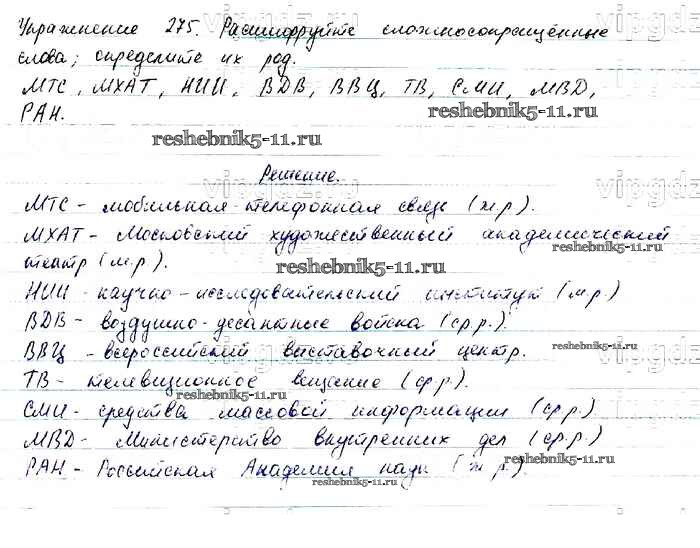 Упражнение 275. Расшифруйте сложносокращённые
слова; определите их род.
МТС, МХАТ, НИИ, ВДВ, ВВЦ, ТВ, СМИ, МВД,
reshebnik5-11.ru
РАН.
reshebnik5-11.ru
Решение.
vipgdz.ru
МТС - мобильная телефонная связь (ж.р.).
МХАТ - Московский художественный академический
театр (м.р.).
reshebnik5-11.ru
НИИ - научно-исследовательский институт (м.р.)
ВДВ - воздушно-десантные войска (ср.р.).
ВВЦ - всероссийский выставочный центр.
reshebnik5-11.ru
ТВ - телевизионное вещание (ср.р.).
reshebnik5-11.ru
СМИ - средства массовой информации (ср.р.)
МВД - Министерство внутренних дел (ср.р.)
reshebnik5-11.ru
РАН - Российская Академия наук (ж.р.).
reshebnik5-11.ru